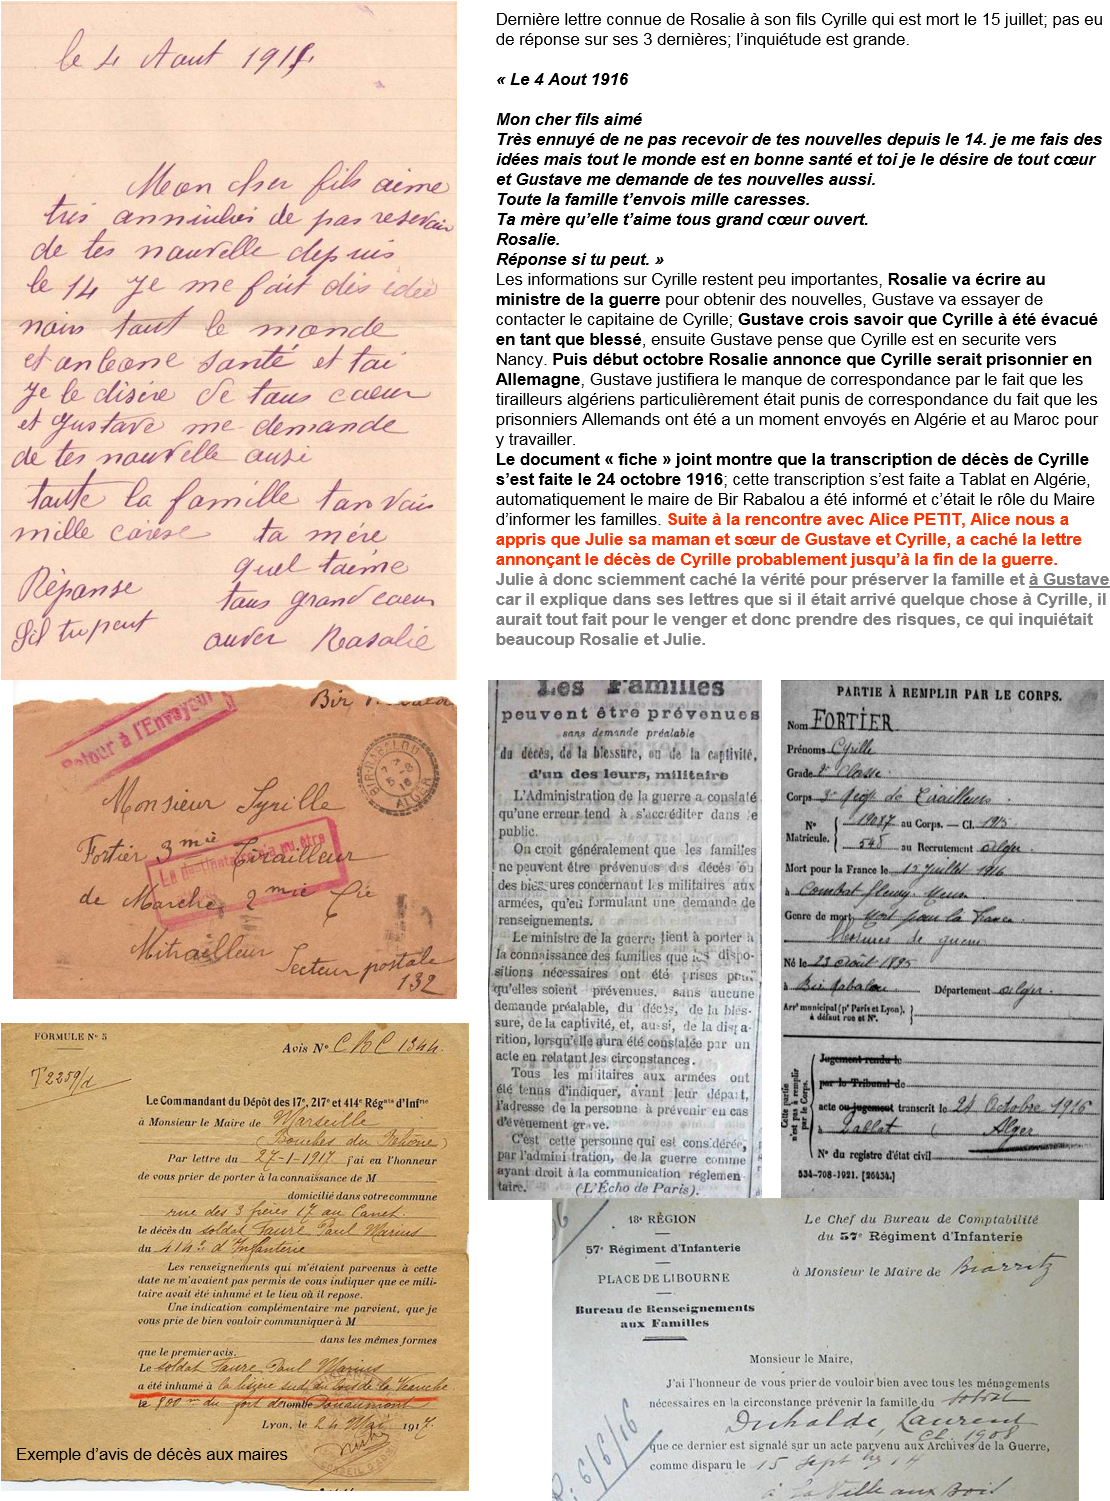 le 4 Aout 191
Mon cher fils aime
très annuiés de pas resevoir
de tes nouvelle depuis
le 14 Je me fait des idée
mais tout le monde
et en bone santé et toi
je le désire de tous coeur
et Gustave me demande
de tes nouvelle ausi
toute la famille t'anvois
mille carese ta mère
quel t'aime
Réponse tous grand coeur
Sil tu peut ouver Rosalie
Dernière lettre connue de Rosalie à son fils Cyrille qui est mort le 15 juillet; pas eu
de réponse sur ses 3 dernières; l'inquiétude est grande.
« Le 4 Aout 1916
Mon cher fils aimé
Très ennuyé de ne pas recevoir de tes nouvelles depuis le 14. je me fais des
idées mais tout le monde est en bonne santé et toi je le désire de tout cœur
et Gustave me demande de tes nouvelles aussi.
Toute la famille t'envois mille caresses.
Ta mère qu'elle t'aime tous grand cœur ouvert.
Rosalie.
Réponse si tu peut. »
Les informations sur Cyrille restent peu importantes, Rosalie va écrire au
ministre de la guerre pour obtenir des nouvelles, Gustave va essayer de
contacter le capitaine de Cyrille; Gustave crois savoir que Cyrille à été évacué
en tant que blessé, ensuite Gustave pense que Cyrille est en securite vers
Nancy. Puis début octobre Rosalie annonce que Cyrille serait prisonnier en
Allemagne, Gustave justifiera le manque de correspondance par le fait que les
tirailleurs algériens particulièrement était punis de correspondance du fait que les
prisonniers Allemands ont été a un moment envoyés en Algérie et au Maroc pour
y travailler.
Le document « fiche » joint montre que la transcription de décès de Cyrille
s'est faite le 24 octobre 1916; cette transcription s'est faite a Tablat en Algérie,
automatiquement le maire de Bir Rabalou a été informé et c'était le rôle du Maire
d'informer les familles. Suite à la rencontre avec Alice PETIT, Alice nous a
appris que Julie sa maman et sœur de Gustave et Cyrille, a caché la lettre
annonçant le décès de Cyrille probablement jusqu'à la fin de la guerre.
Julie à donc sciemment caché la vérité pour préserver la famille et à Gustave
car il explique dans ses lettres que si il était arrivé quelque chose à Cyrille, il
aurait tout fait pour le venger et donc prendre des risques, ce qui inquiétait
beaucoup Rosalie et Julie.
Retour à l'Envoyeur
Bir
BIR-RABALOU
ALGER
Monsieur Syrille
Fortier 3mie Tirailleur
Le destinataire n'a pu être
de Marche 2mie Cie
Mitrailleur
Secteur postale
132
Les Familles
peuvent être prévenues
sans demande préalable
du décès, de la blessure, ou de la captivité,
d'un des leurs, militaire
L'Administration de la guerre a constaté
qu'une erreur tend à s'accréditer dans le
public.
On croit généralement que les familles
ne peuvent être prévenues des décès ou
des blessures concernant les militaires aux
armées, qu'en formulant une demande de
renseignements.
Le ministre de la guerre tient à porter à
la connaissance des familles que les dispo-
sitions nécessaires ont été prises pour
qu'elles soient prévenues, sans aucune
demande préalable, du décès, de la bles-
sure, de la captivité, et, aussi, de la dispa-
rition, lorsqu'elle aura été constatée par un
acte en relatant les circonstances.
Tous les militaires aux armées ont
été tenus d'indiquer, avant leur départ,
l'adresse de la personne à prévenir en cas
d'événement grave.
C'est cette personne qui est considérée,
par l'administration, de la guerre comme
ayant droit à la communication réglemen-
taire. (L'Écho de Paris).
PARTIE À REMPLIR PAR LE CORPS.
Nom FORTIER
Prénoms Cyrille
Grade 2e Classe
Corps 3e Régt de Tirailleurs
N° Matricule. 19087 au Corps. — Cl. 1915
548 au Recrutement Alger
Mort pour la France le 15 Juillet 1916
à Combat fleury Meuse
Genre de mort Mort pour la France
blessures de guerre
Né le 23 Août 1895
à Bir Rabalou Département Alger
Arrt municipal (pr Paris et Lyon),
à défaut rue et N°.
Cette partie
n'est pas à remplir
par le Corps.
Jugement rendu le
par le Tribunal de
acte ou jugement transcrit le 24 Octobre 1916
à Tablat (Alger
N° du registre d'état civil
534-708-1921. [26434.]
FORMULE N° 5
T2259/d
Avis N° CBC 1344
Le Commandant du Dépôt des 17e, 217e et 414e Régnts d'Infrie
à Monsieur le Maire de Marseille
(Bouches du Rhône)
Par lettre du 27-1-1917 j'ai eu l'honneur
de vous prier de porter à la connaissance de M
domicilié dans votre commune
rue des 3 frères 17 au Canet
le décès du soldat Faure Paul Marius
du 414e d'Infanterie
Les renseignements qui m'étaient parvenus à cette
date ne m'avaient pas permis de vous indiquer que ce mili-
taire avait été inhumé et le lieu où il repose.
Une indication complémentaire me parvient, que je
vous prie de bien vouloir communiquer à M
dans les mêmes formes
que le premier avis.
Le soldat Faure Paul Marius
a été inhumé à la lisière sud du bois de la
le 800m du fort de Douaumont
Lyon, le 24 Mai 1917.
Exemple d'avis de décès aux maires
18e RÉGION
57e Régiment d'Infanterie
PLACE DE LIBOURNE
Bureau de Renseignements
aux Familles
Le Chef du Bureau de Comptabilité
du 57e Régiment d'Infanterie
à Monsieur le Maire de Biarritz
Monsieur le Maire,
J'ai l'honneur de vous prier de vouloir bien avec tous les ménagements
nécessaires en la circonstance prévenir la famille du soldat
Duhalde, Laurent
Cl. 1908
que ce dernier est signalé sur un acte parvenu aux Archives de la Guerre,
comme disparu le 15 Septbre 14
à La Ville aux Bois
R. 6/6/16